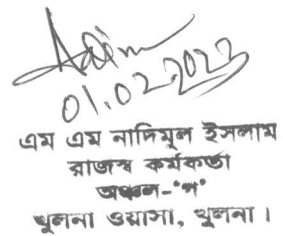 01.02.2023
এম এম নাদিমুল ইসলাম
রাজস্ব কর্মকর্তা
অঞ্চল-'গ'
খুলনা ওয়াসা, খুলনা।